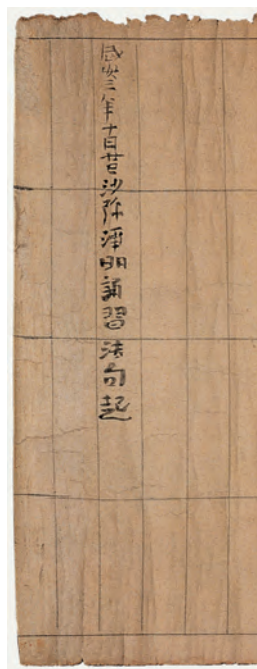 咸安三年十月廿日沙弥淨明誦習法句起